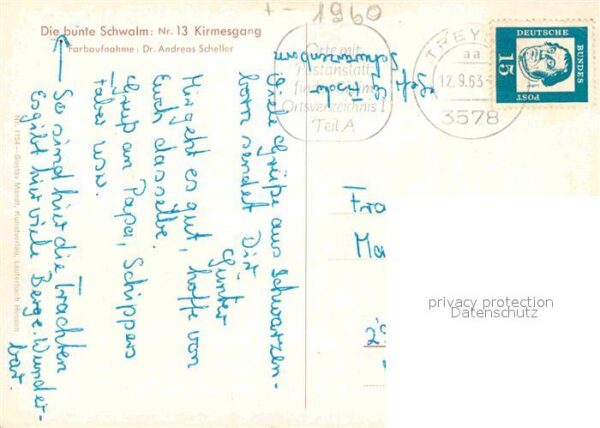 + - 1960
Die bunte Schwalm: Nr. 13 Kirmesgang
Farbaufnahme: Dr. Andreas Scheller
Viele Grüße aus Schwarzen-
born sendet Dir
Günter
Mir geht es gut, hoffe von
Euch dasselbe.
Gruß an Papa, Schippers
Tabea usw.
So sind hier die Trachten
Es gibt hier viele Berge. Wunder-
bar.
Schwarzenborn
Orte mit
Postanstalt
Ortsverzeichnis I
Teil A
TREYSA
aa
12.9.63
3578
DEUTSCHE
BUNDES
POST
15
Fra
Ma
Nr. 1154 - Gustav Mandt, Kunstverlag, Lauterbach Hessen
privacy protection
Datenschutz